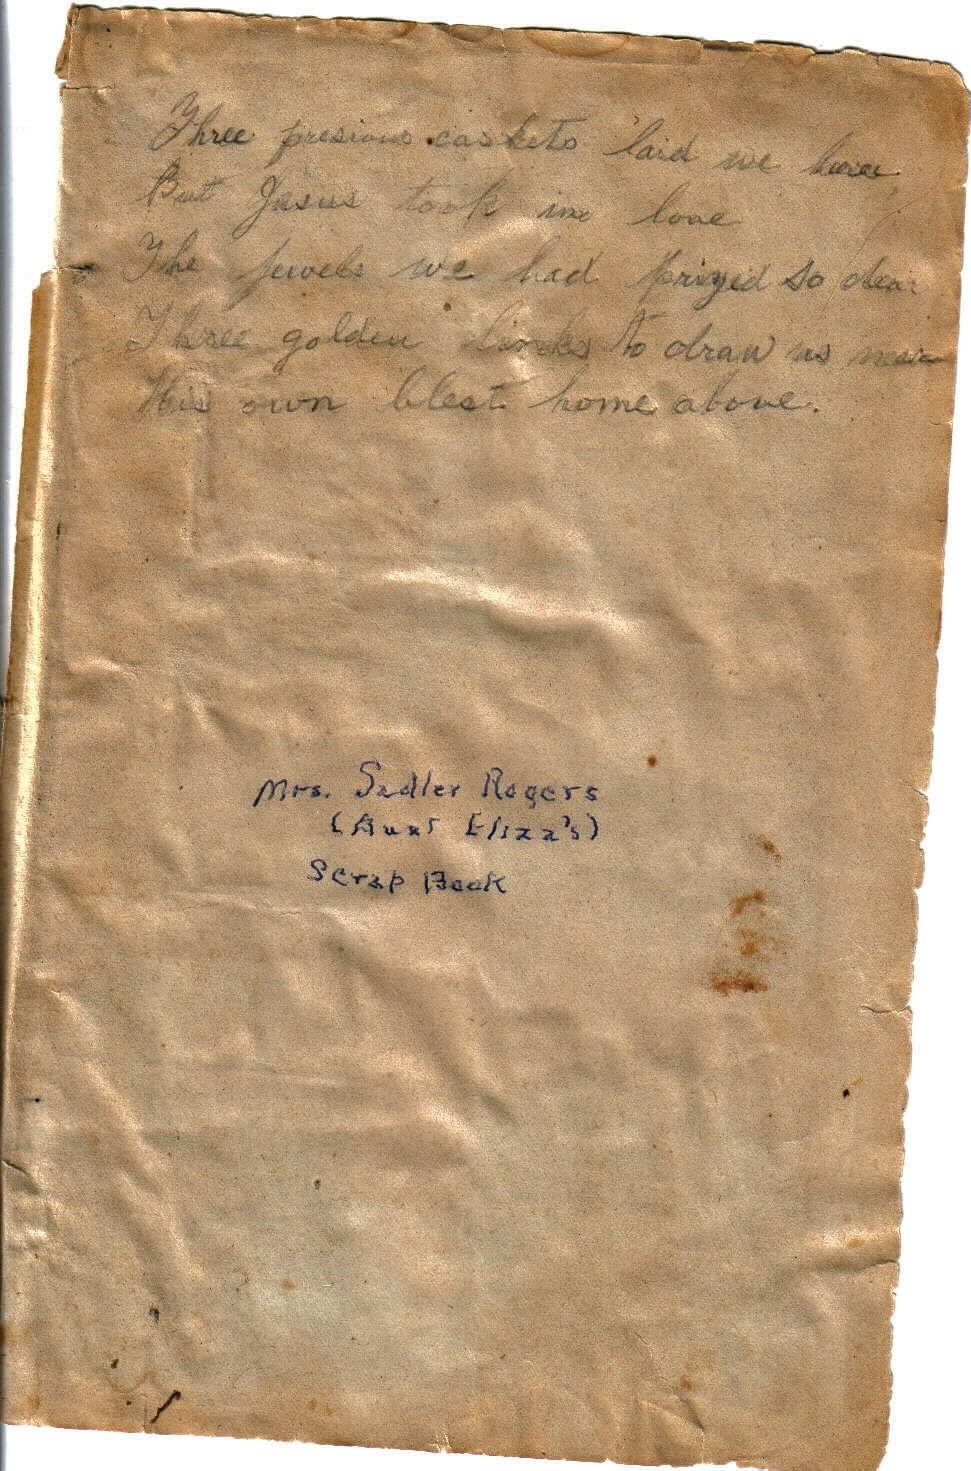 Three presious caskets laid we here
But Jesus took in love
The jewels we had prized so dear
Three golden links to draw us near
His own blest home above.
Mrs. Sadler Rogers
(Aunt Eliza's)
Scrap Book